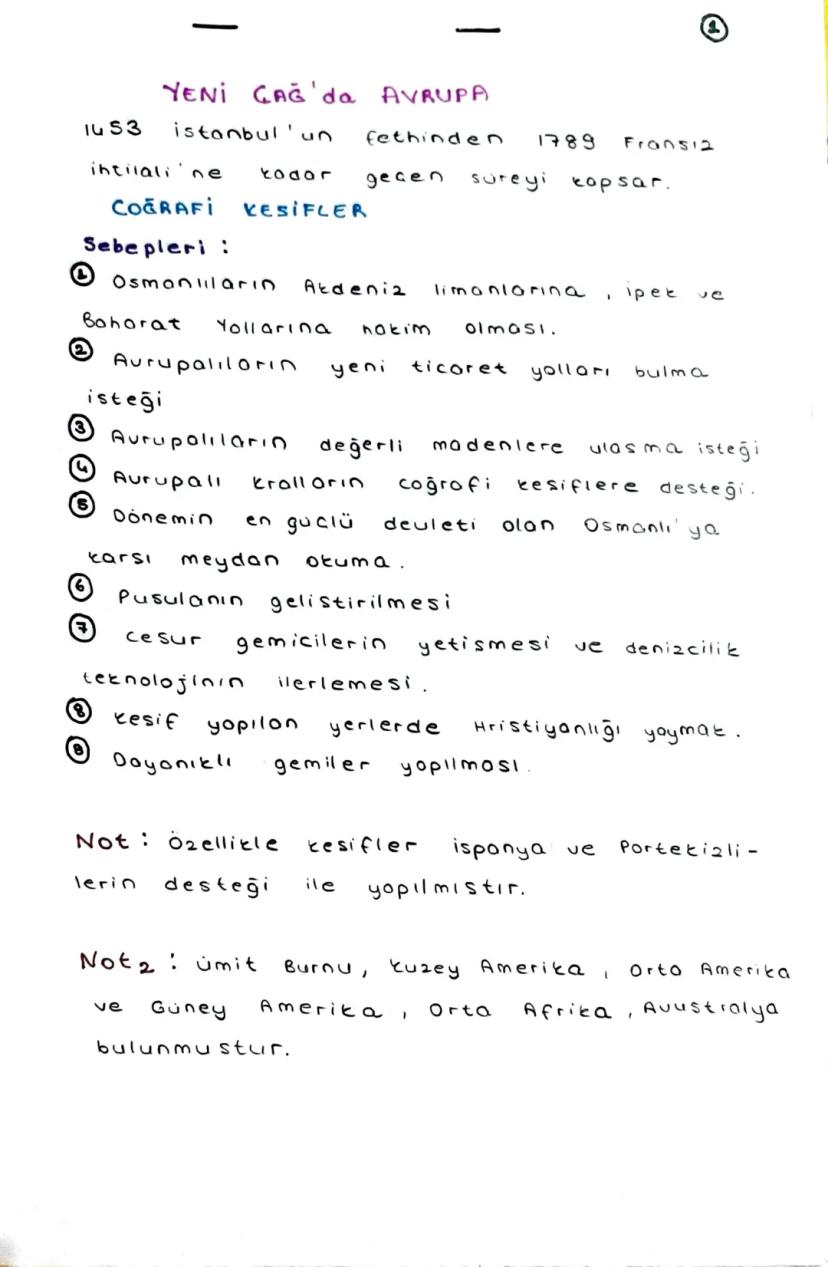 1
YENİ ÇAĞ'da AVRUPA
1453 istanbul'un fethinden 1789 Fransız
ihtilali'ne kadar geçen süreyi kapsar.
COĞRAFİ KESİFLER
Sebepleri :
1 Osmanlıların Akdeniz limanlarına, ipek ve
Baharat Yollarına hakim olması.
2 Avrupalıların yeni ticaret yolları bulma
isteği
3 Avrupalıların değerli madenlere ulasma isteği
4 Avrupalı kralların coğrafi kesiflere desteği.
5 Dönemin en güclü devleti olan Osmanlı'ya
karsı meydan okuma.
6 Pusulanın gelistirilmesi
7 cesur gemicilerin yetismesi ve denizcilik
teknolojinin ilerlemesi.
8 kesif yapılan yerlerde Hristiyanlığı yaymak.
9 Dayanıklı gemiler yapılması.
Not : Özellikle kesifler ispanya ve Portekizli-
lerin desteği ile yapılmıstır.
Not2 : ümit Burnu, kuzey Amerika, Orta Amerika
ve Güney Amerika, Orta Afrika, Avustralya
bulunmustur.